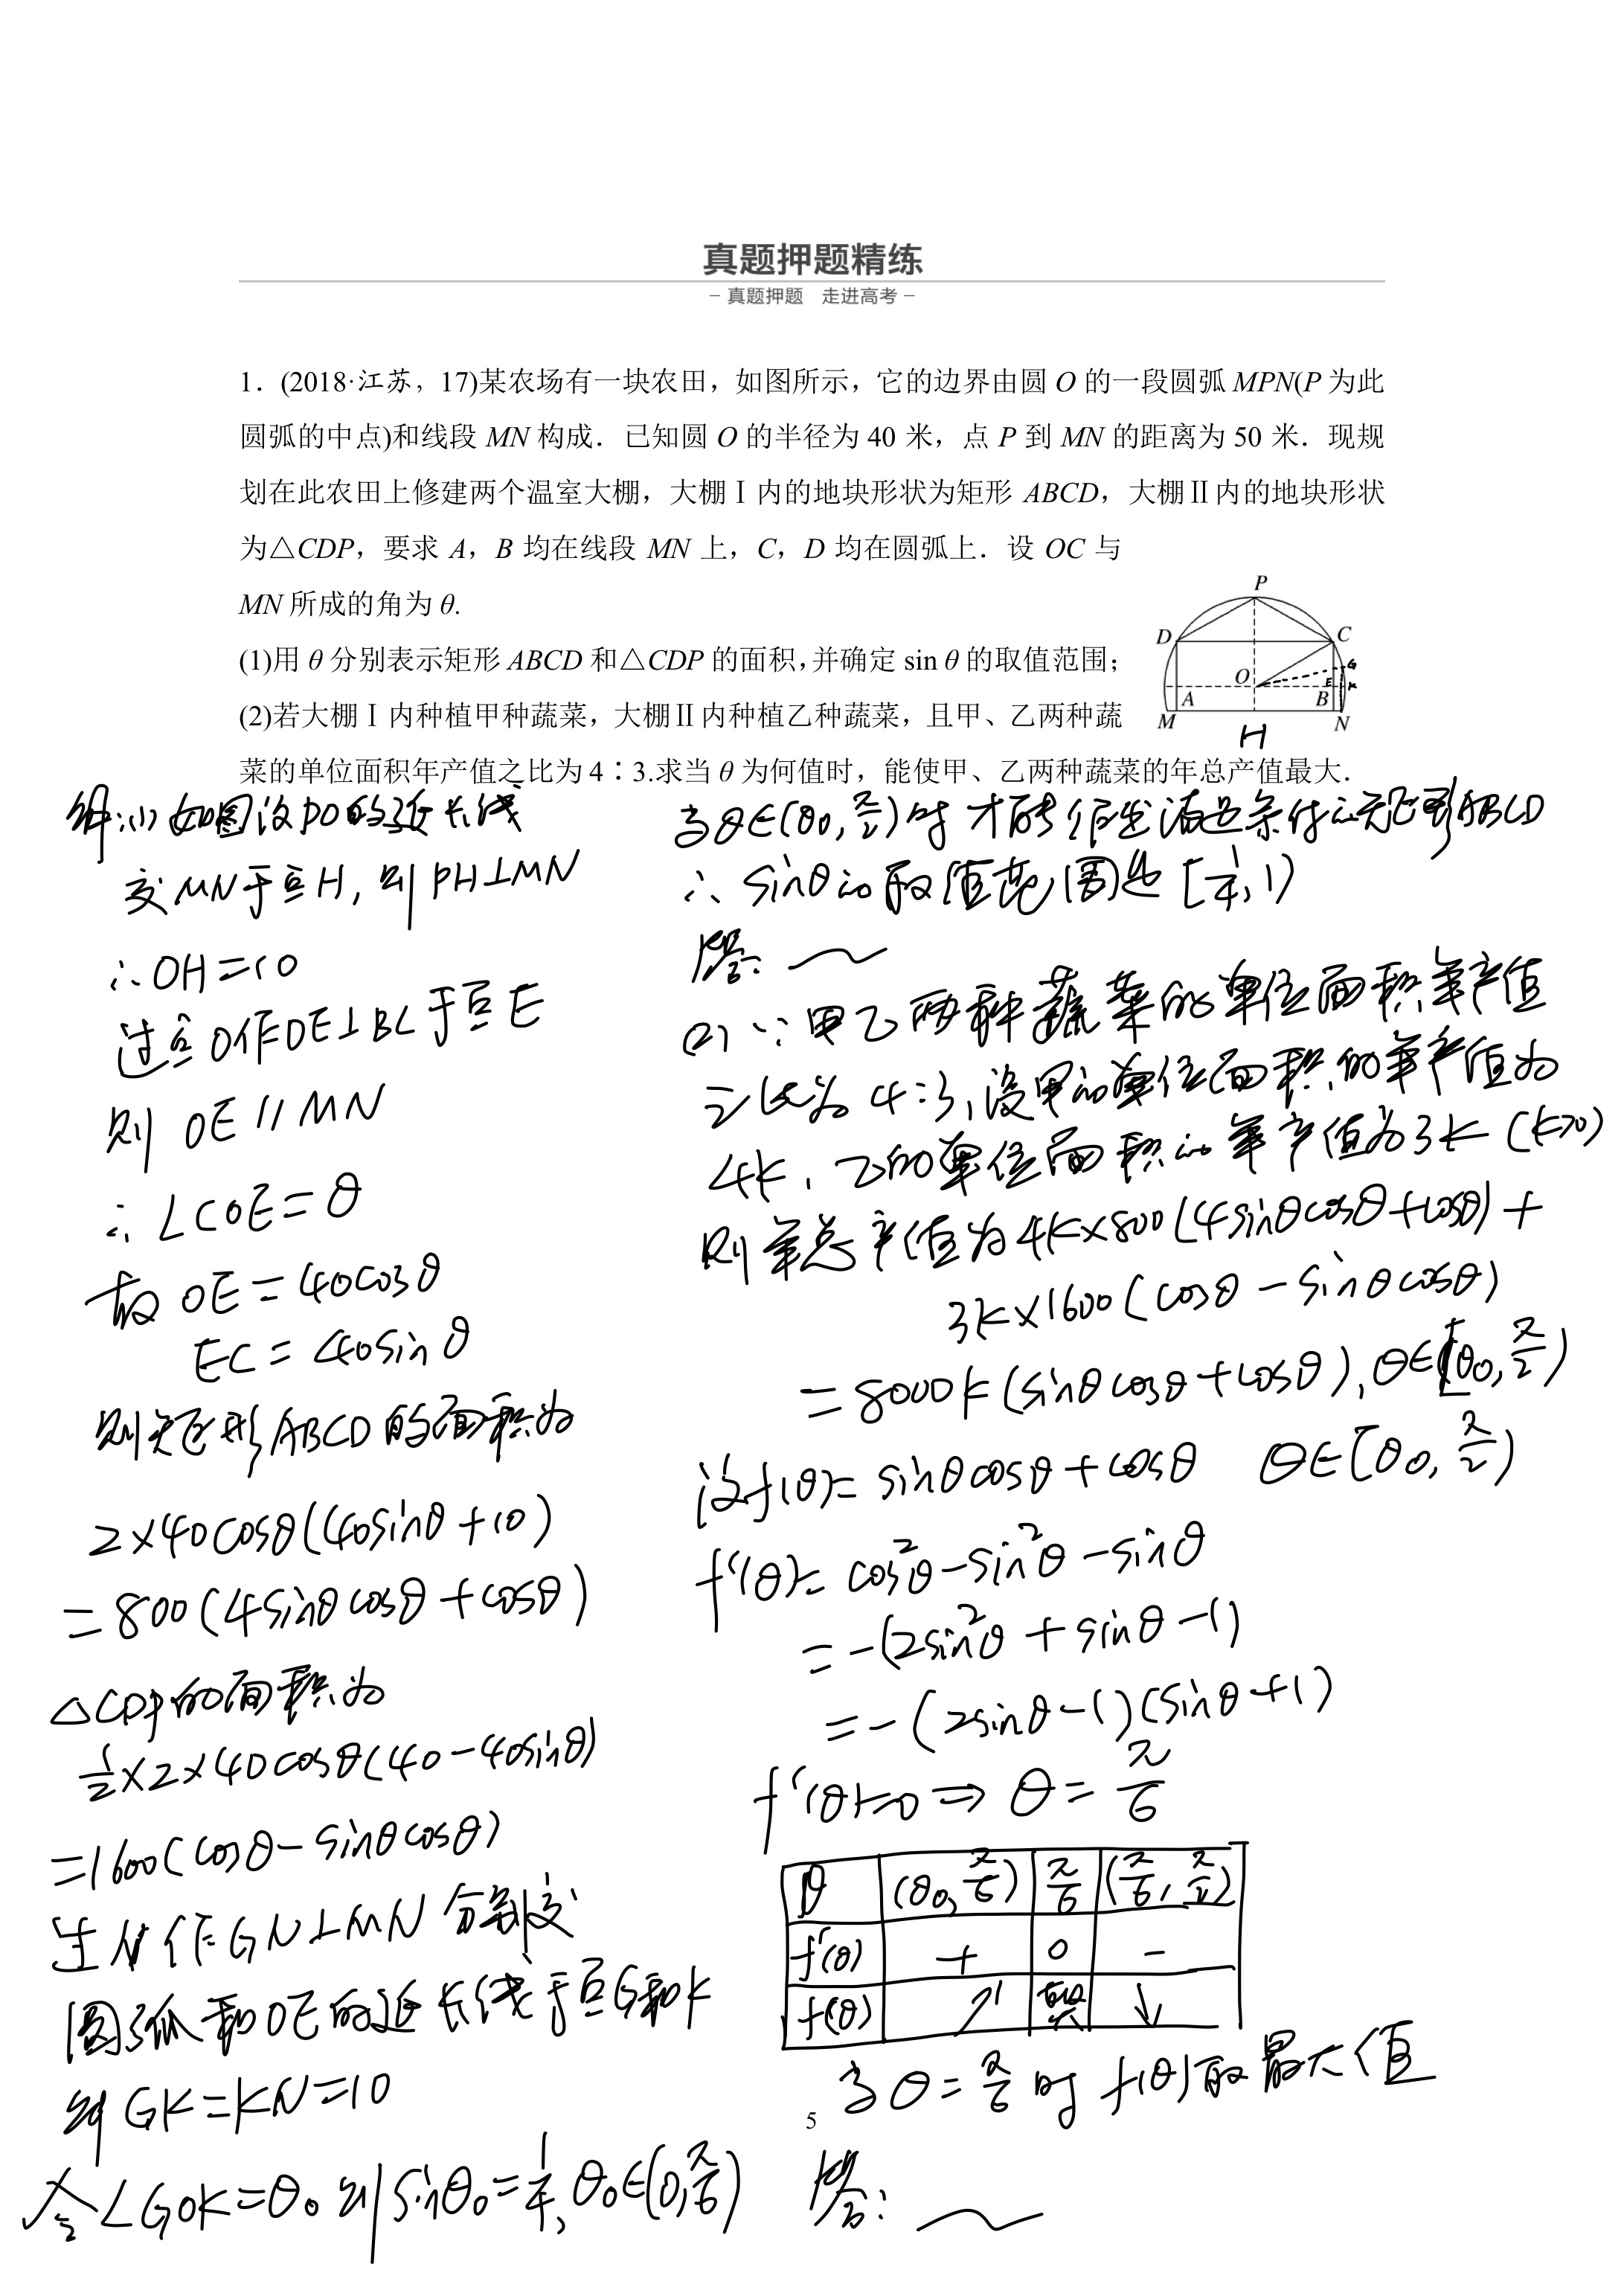 真题押题精练
– 真题押题 走进高考 –
1．(2018·江苏，17)某农场有一块农田，如图所示，它的边界由圆 O 的一段圆弧 MPN(P 为此
圆弧的中点)和线段 MN 构成．已知圆 O 的半径为 40 米，点 P 到 MN 的距离为 50 米．现规
划在此农田上修建两个温室大棚，大棚Ⅰ内的地块形状为矩形 ABCD，大棚Ⅱ内的地块形状
为△CDP，要求 A，B 均在线段 MN 上，C，D 均在圆弧上．设 OC 与
MN 所成的角为 θ.
(1)用 θ 分别表示矩形 ABCD 和△CDP 的面积，并确定 sin θ 的取值范围；
(2)若大棚Ⅰ内种植甲种蔬菜，大棚Ⅱ内种植乙种蔬菜，且甲、乙两种蔬
菜的单位面积年产值之比为 4∶3.求当 θ 为何值时，能使甲、乙两种蔬菜的年总产值最大．
P
D C
G
O E K
A B
M N
H
解:(1) 如图设PO的延长线
交MN于点H, 则PH⊥MN
∴OH=10
过点O作OE⊥BC于点E
则 OE∥MN
∴∠COE=θ
故 OE=40cosθ
EC=40sinθ
则矩形ABCD的面积为
2×40cosθ(40sinθ+10)
=800(4sinθcosθ+cosθ)
△CDP的面积为
1/2×2×40cosθ(40-40sinθ)
=1600(cosθ-sinθcosθ)
过N作GN⊥MN 分别交
圆弧和OE的延长线于点G和K
则GK=KN=10
令∠GOK=θ₀ 则sinθ₀=1/4, θ₀∈(0,π/6)
当θ∈(θ₀,π/2)时 才能作出满足条件的矩形ABCD
∴ sinθ的取值范围是[1/4,1)
答:
(2) ∵甲乙两种蔬菜的单位面积年产值
之比为4:3, 设甲的单位面积的年产值为
4k, 乙的单位面积的年产值为3k (k>0)
则年总产值为4k×800(4sinθcosθ+cosθ)+
3k×1600(cosθ-sinθcosθ)
=8000k(sinθcosθ+cosθ), θ∈[θ₀,π/2)
设f(θ)=sinθcosθ+cosθ θ∈[θ₀,π/2)
f'(θ)=cos²θ-sin²θ-sinθ
=-(2sin²θ+sinθ-1)
=-(2sinθ-1)(sinθ+1)
f'(θ)=0⇒θ=π/6
θ (θ₀,π/6) π/6 (π/6,π/2)
f'(θ) + 0 -
f(θ) ↗ 极大 ↓
当θ=π/6时 f(θ)取最大值
5
答: